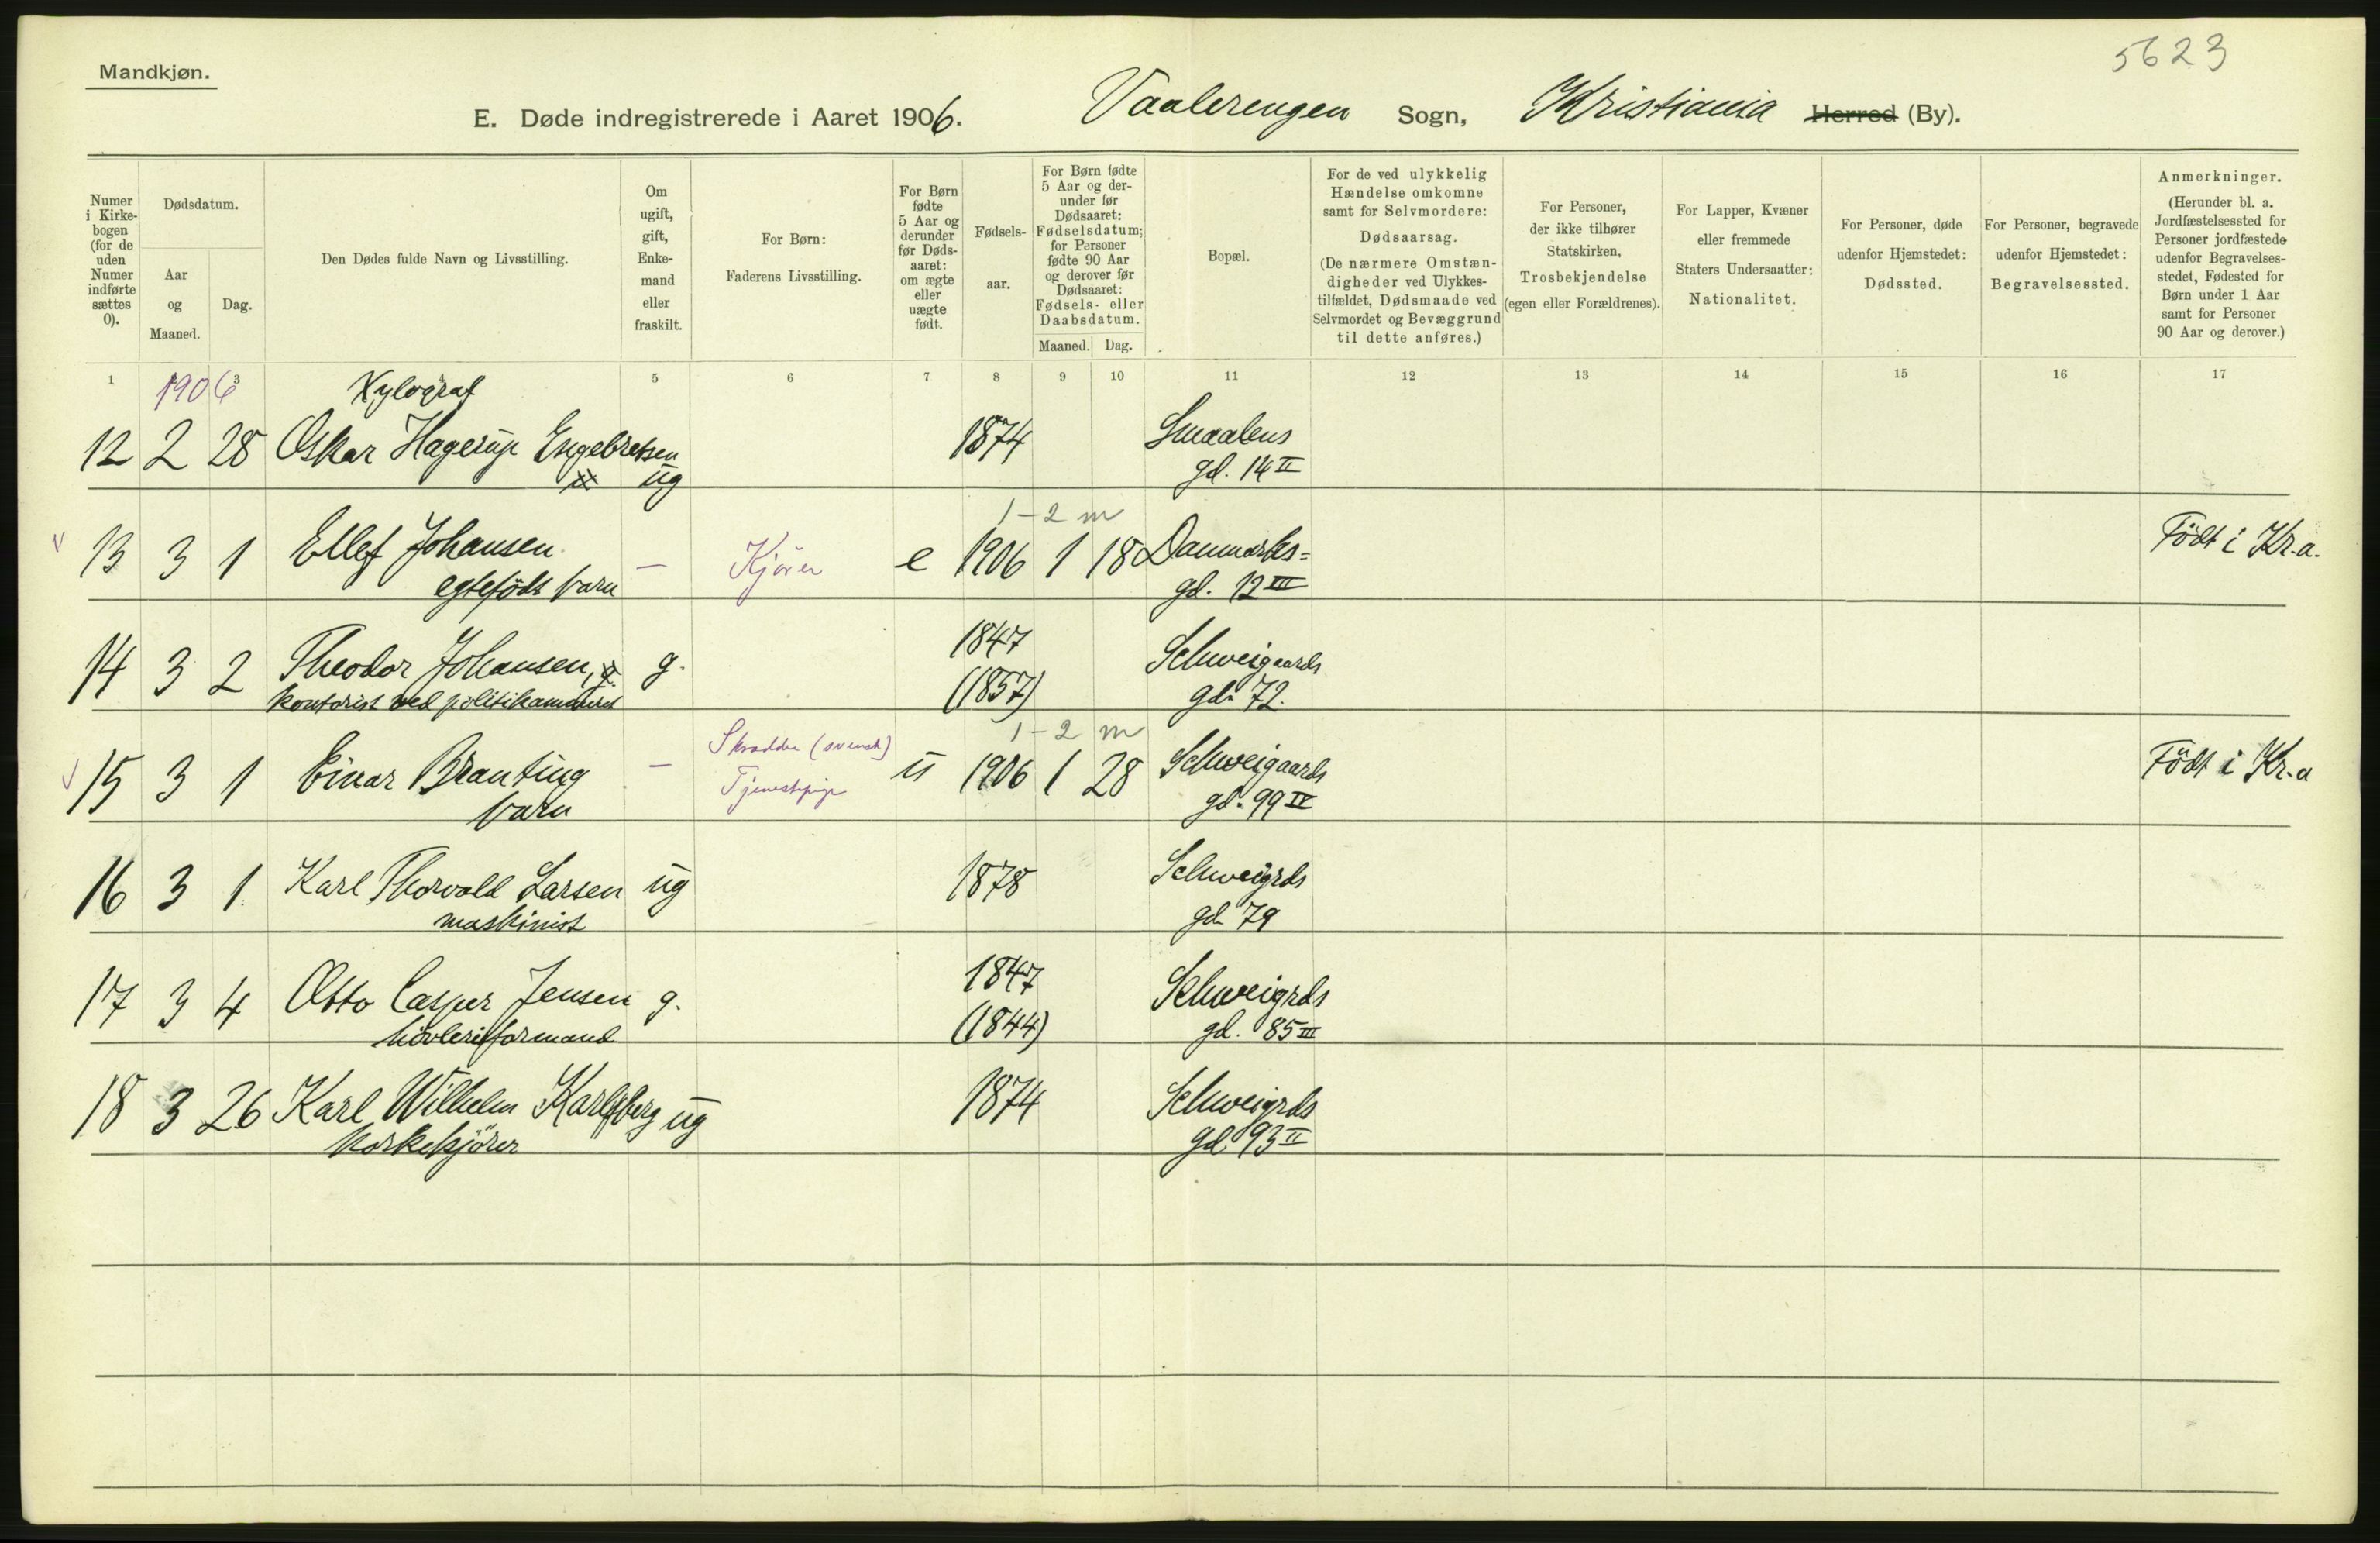 Mandkjøn.
5623
E. Døde indregistrerede i Aaret 1906. Vaalerengen Sogn, Kristiania Herred (By).
Numer i Kirkebogen (for de uden Numer indførte sættes 0).
Dødsdatum.
Aar og Maaned.
Dag.
Den Dødes fulde Navn og Livsstilling.
Om ugift, gift, Enkemand eller fraskilt.
For Børn: Faderens Livsstilling.
For Børn fødte 5 Aar og derunder før Dødsaaret: om ægte eller uægte født.
Fødselsaar.
For Børn fødte 5 Aar og derunder før Dødsaaret: Fødselsdatum; for Personer fødte 90 Aar og derover før Dødsaaret: Fødsels- eller Daabsdatum.
Maaned. Dag.
Bopæl.
For de ved ulykkelig Hændelse omkomne samt for Selvmordere: Dødsaarsag. (De nærmere Omstændigheder ved Ulykkestilfældet, Dødsmaade ved Selvmordet og Bevæggrund til dette anføres.)
For Personer, der ikke tilhører Statskirken, Trosbekjendelse (egen eller Forældrenes).
For Lapper, Kvæner eller fremmede Staters Undersaatter: Nationalitet.
For Personer, døde udenfor Hjemstedet: Dødssted.
For Personer, begravede udenfor Hjemstedet: Begravelsessted.
Anmerkninger. (Herunder bl. a. Jordfæstelsessted for Personer jordfæstede udenfor Begravelsesstedet, Fødested for Børn under 1 Aar samt for Personer 90 Aar og derover.)
1 3 5 6 7 8 9 10 11 12 13 14 15 16 17
1906
Xylograf
12 2 28 Oskar Hagerup Engebretsen ug 1874 Smaalens
gd. 14 II
1-2 m
13 3 1 Ellef Johansen — Kjører e 1906 1 18 Danmarks= Født i Kr.a.
egtefødt barn gd. 12 III
14 3 2 Theodor Johansen, g. g. 1847 Schweigaards
kontorist ved politikammeret (1857) gd. 72.
1-2 m
15 3 1 Einar Branting — Skrædder (svensk) u 1906 1 28 Schweigaards Født i Kr.a
barn Tjenestepige gd. 99 IV
16 3 1 Karl Thorvald Larsen ug 1878 Schweigrds
maskinist gd. 79
17 3 4 Otto Casper Jensen g. 1847 Schweigrds
høvleriformand (1844) gd. 85 III
18 3 26 Karl Wilhelm Karlsberg ug 1874 Schweigrds
korkekjører gd. 93 II